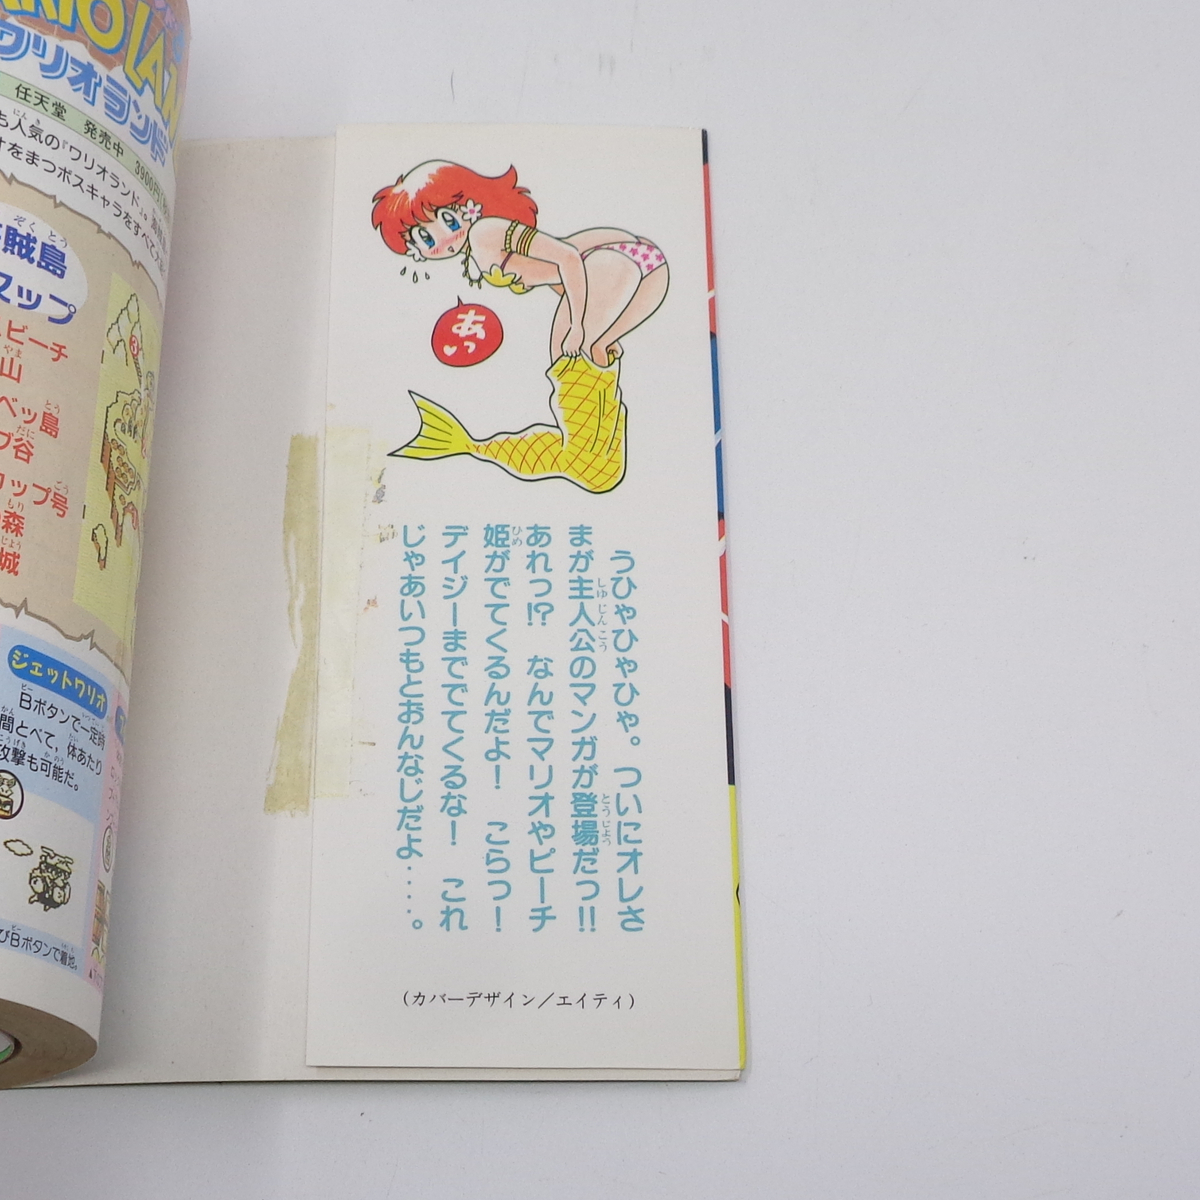 ARIO LAN
ワリオランド
任天堂 発売中 3900円
も人気の『ワリオランド』。
オをまつボスキャラをすべて
賊島
マップ
ビーチ
山
ベッ島
ブ谷
カップ号
森
城
ジェットワリオ
Bボタンで一定時
間とべて、体あたり
攻撃も可能だ。
びBボタンで着地。
あっ
うひゃひゃひゃ。ついにオレさ
まが主人公のマンガが登場だっ!!
あれっ!? なんでマリオやピーチ
姫がでてくるんだよ! こらっ!
デイジーまででてくるな! これ
じゃあいつもとおんなじだよ‥‥。
(カバーデザイン/エイティ)